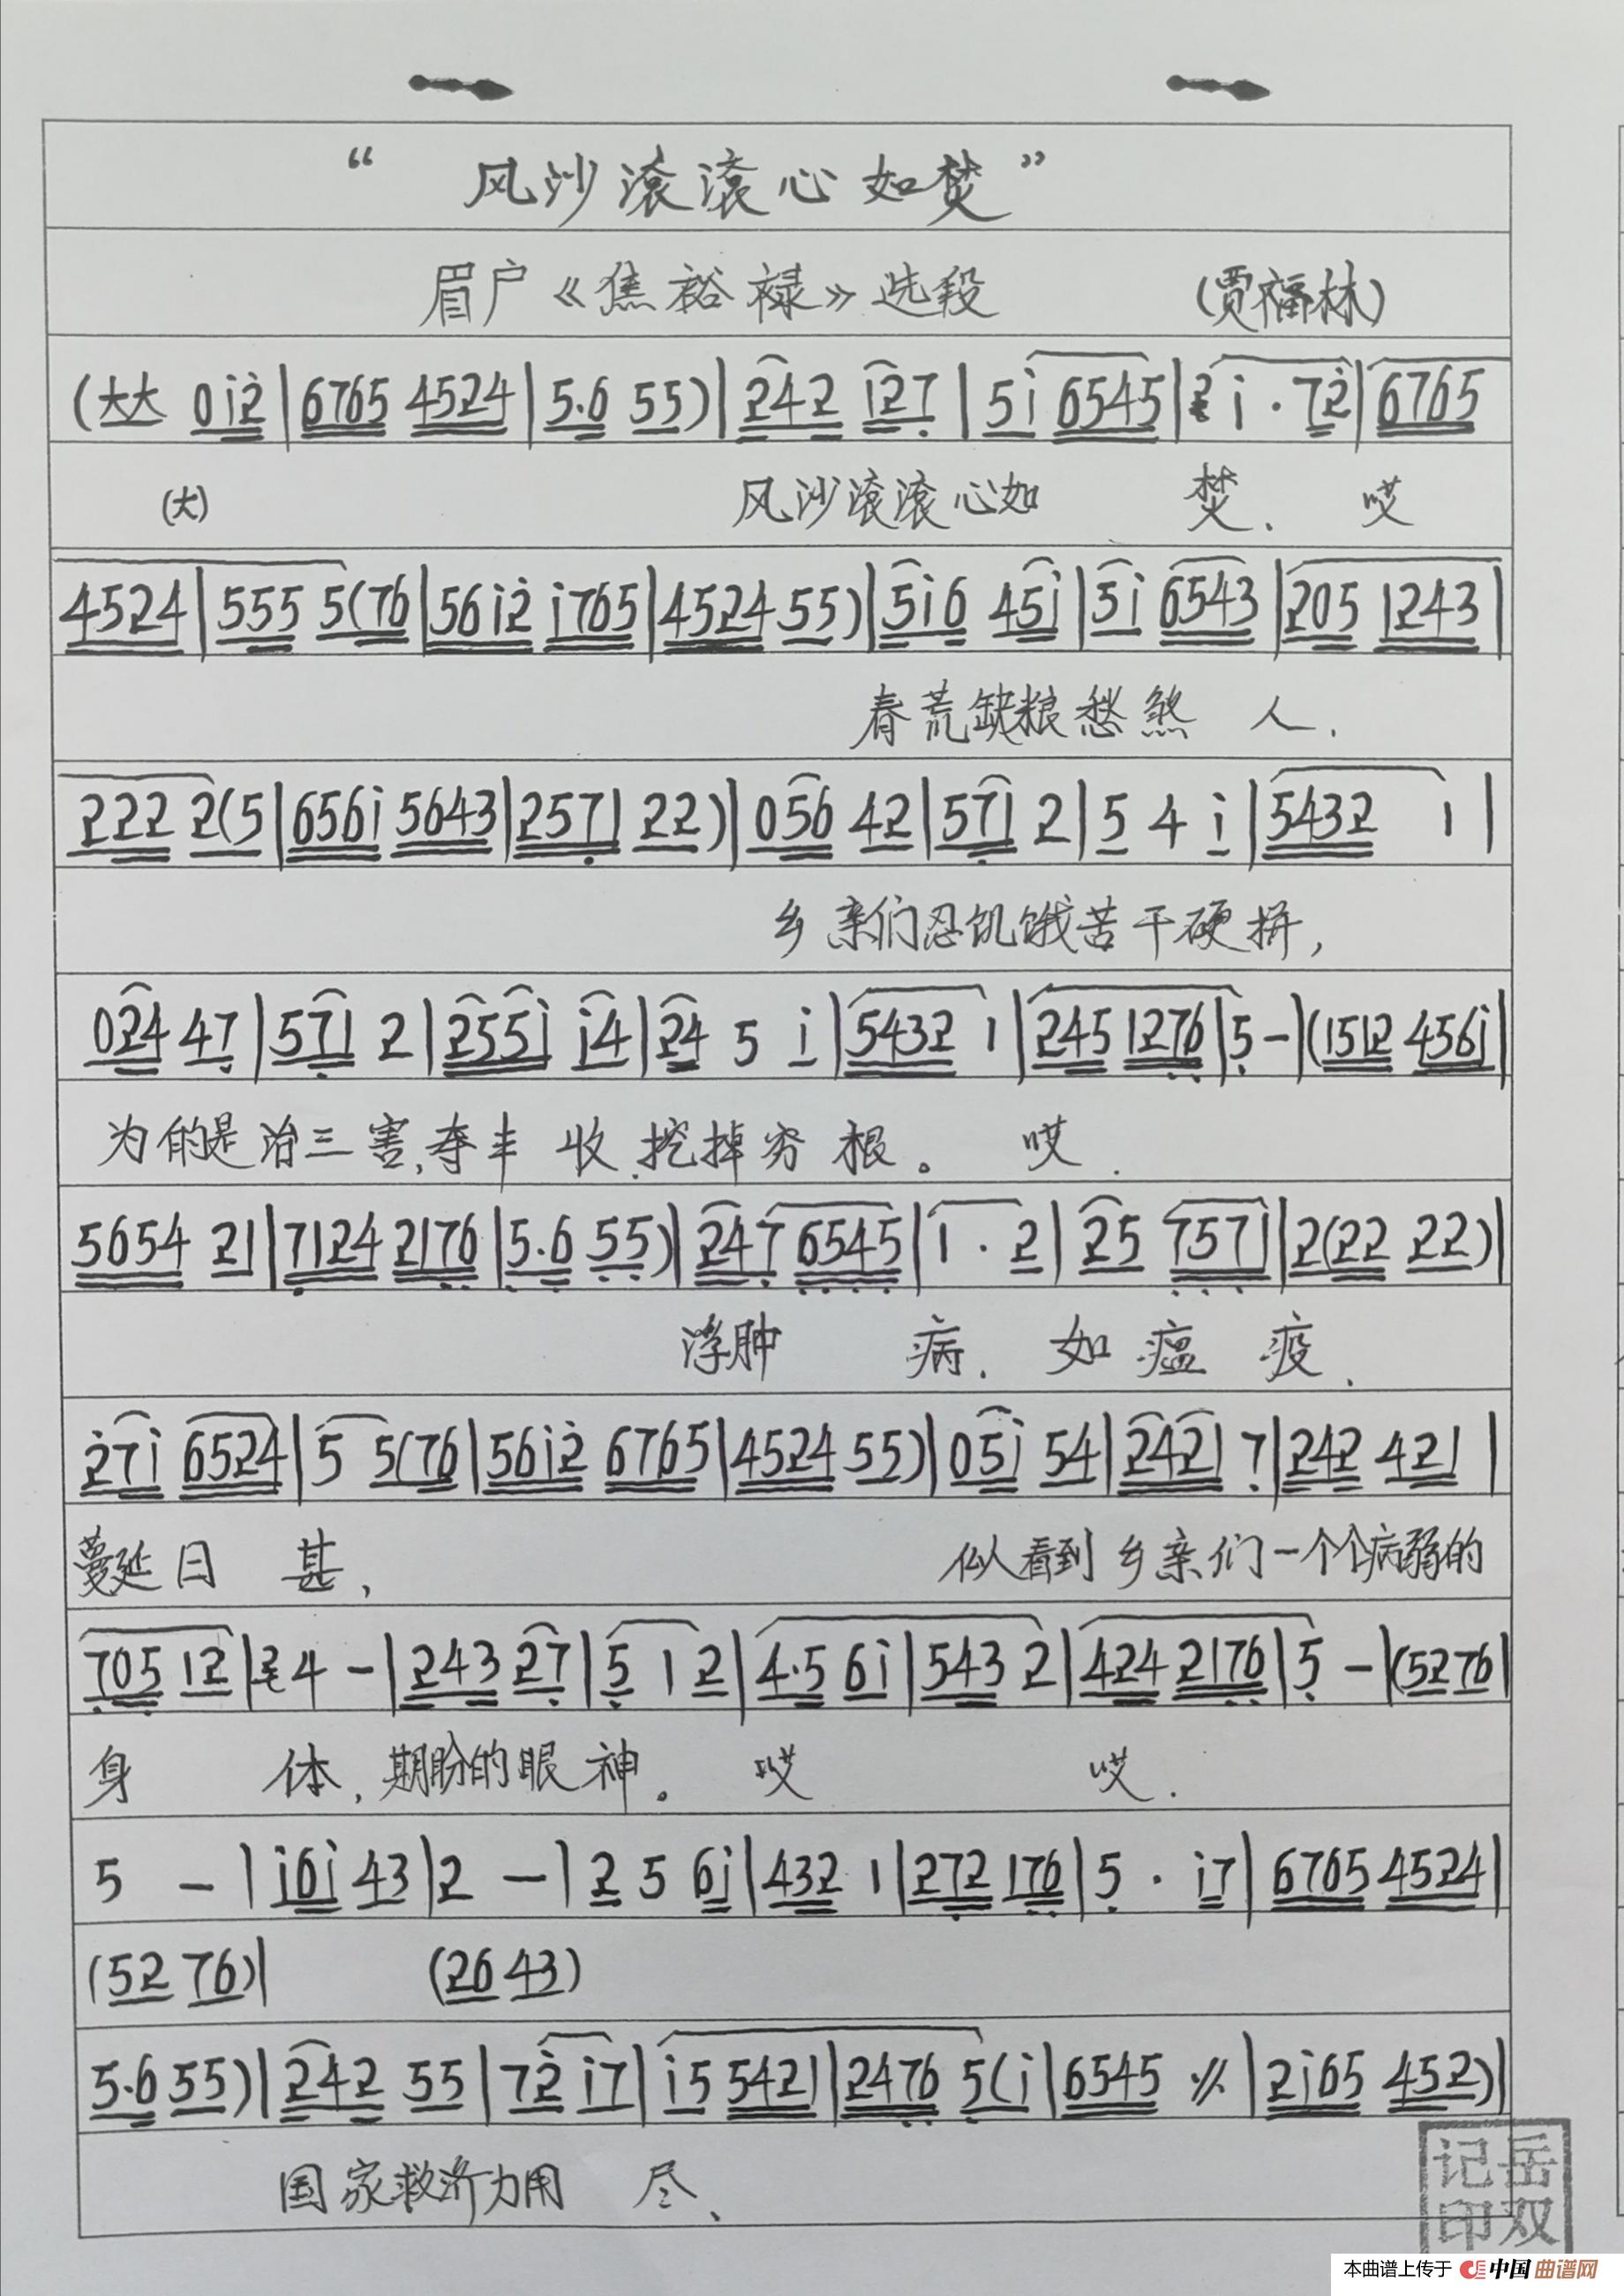 “ 风沙滚滚心如焚”
眉户《焦裕禄》选段 (贾福林)
(大大 0i2|6765 4524|5.6 55)|242 127|5i 6545|i.72|6765
(大) 风沙滚滚心如 焚、 哎
4524|555 5(76|56i2 i765|4524 55)|5i6 45i|5i 6543|205 1243|
春荒缺粮愁煞 人、
222 2(5|656i 5643|2571 22)|056 42|571 2|5 4 i|5432 1|
乡亲们忍饥饿苦干硬拼,
024 47|571 2|255i i4|24 5 i|5432 1|245 1276|5-|(1512 456i|
为的是治三害,夺丰 收、挖掉穷 根。 哎、
5654 21|7124 2176|5.6 55)|247 6545|1.2|25 7571|2(22 22)|
浮肿 病、 如 瘟 疫、
27i 6524|5 5(76|56i2 6765|4524 55)|05i 54|2421 7|242 421|
蔓延日 甚, 似看到乡亲们一个个病弱的
705 12|4 -|243 27|5 1 2|4.5 6i|543 2|424 2176|5 -|(5276|
身 体, 期盼的眼神。 哎 哎、
5 -|i6i 43|2 -|2 5 6i|432 1|272 176|5 . i7|6765 4524|
(52 76)| (26 43)
5.6 55)|242 55|72 i7|i5 5421|2476 5(i|6545 〃|2i65 452)|
国家救济力用 尽、
记岳
印双
本曲谱上传于 中国曲谱网